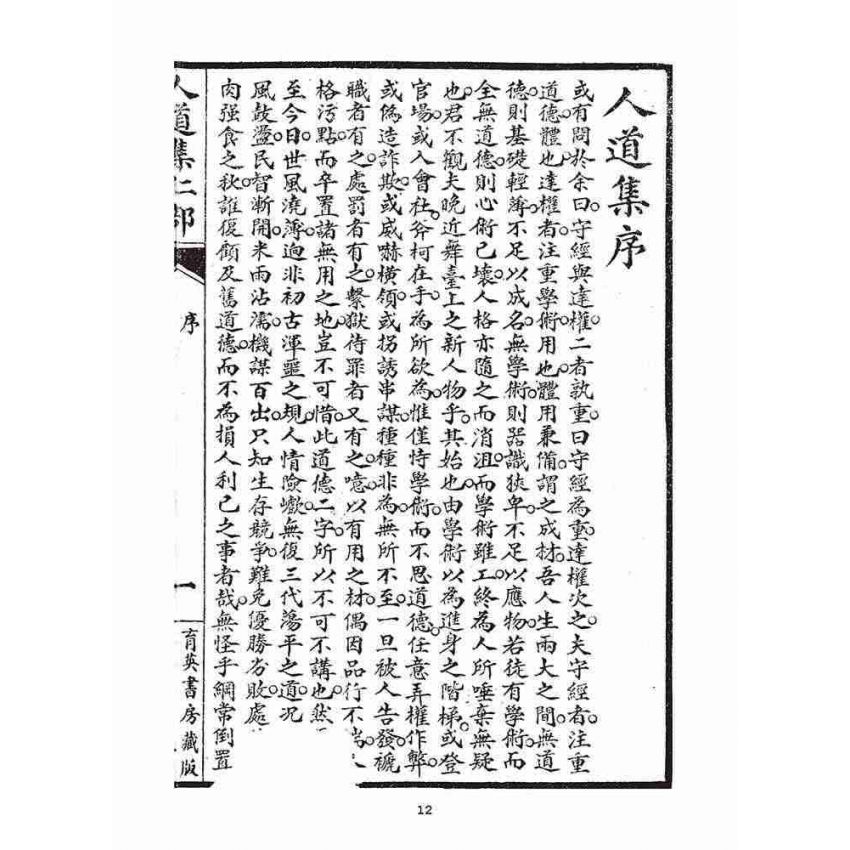 人道集序
或有問於余曰。守經與達權。二者孰重。曰守經為重。達權次之。夫守經者。注重
道德。體也。達權者。注重學術。用也。體用兼備。謂之成材。吾人生兩大之間。無道
德則基礎輕薄。不足以成名。無學術。則器識狹卑。不足以應物。若徒有學術。而
全無道德。則心術已壞。人格亦隨之而消沮。而學術雖工。終為人所唾棄無疑
也。君不觀夫晚近舞臺上之新人物乎。其始也。由學術以為進身之階梯。或登
官場。或入會社。斧柯在手。為所欲為。惟僅恃學術。而不思道德。任意弄權作弊。
或偽造詐欺。或威嚇橫領。或拐誘串謀。種種非為。無所不至。一旦被人告發。褫
職者有之。處罰者有之。繫獄待罪者又有之。噫。以有用之材。偶因品行不
格污點。而卒置諸無用之地。豈不可惜。此道德二字。所以不可不講也。然
至今日。世風澆薄。迥非初古渾噩之規。人情險巇。無復三代蕩平之道。況
風鼓盪。民智漸開。米雨沾濡。機謀百出。只知生存競爭。難免優勝劣敗。處
肉强食之秋。誰復顧及舊道德。而不為損人利己之事者哉。無怪乎綱常倒置
人道集仁部
序
一
育英書房藏版
12